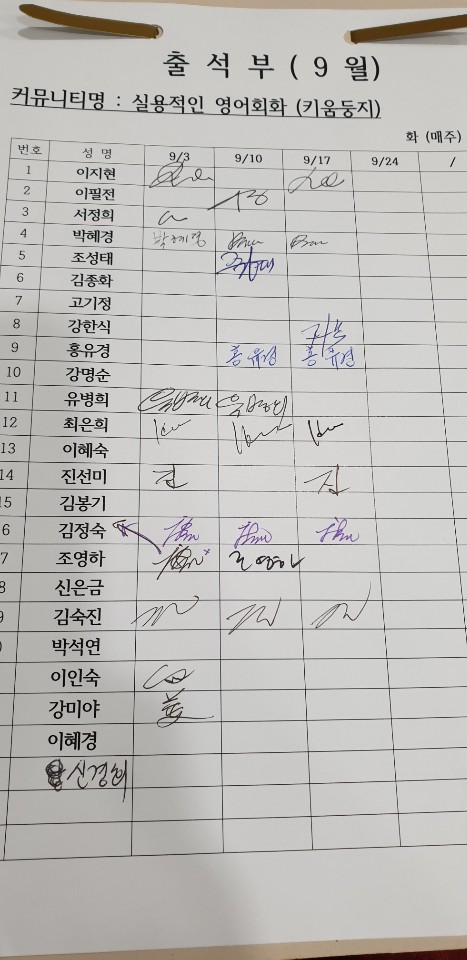 출 석 부 ( 9 월)
커뮤니티명 : 실용적인 영어회화 (키움둥지)
화 (매주)
번호 성 명 9/3 9/10 9/17 9/24 /
1 이지현
2 이필전
3 서정희
4 박혜경 박혜경
5 조성태
6 김종화
7 고기정
8 강한식
9 홍유경 홍유경 홍유경
10 강명순
11 유병희
12 최은희
13 이혜숙
14 진선미 진 진
15 김봉기
6 김정숙
7 조영하 조영하
8 신은금
9 김숙진
박석연
이인숙
강미야
이혜경
신경희